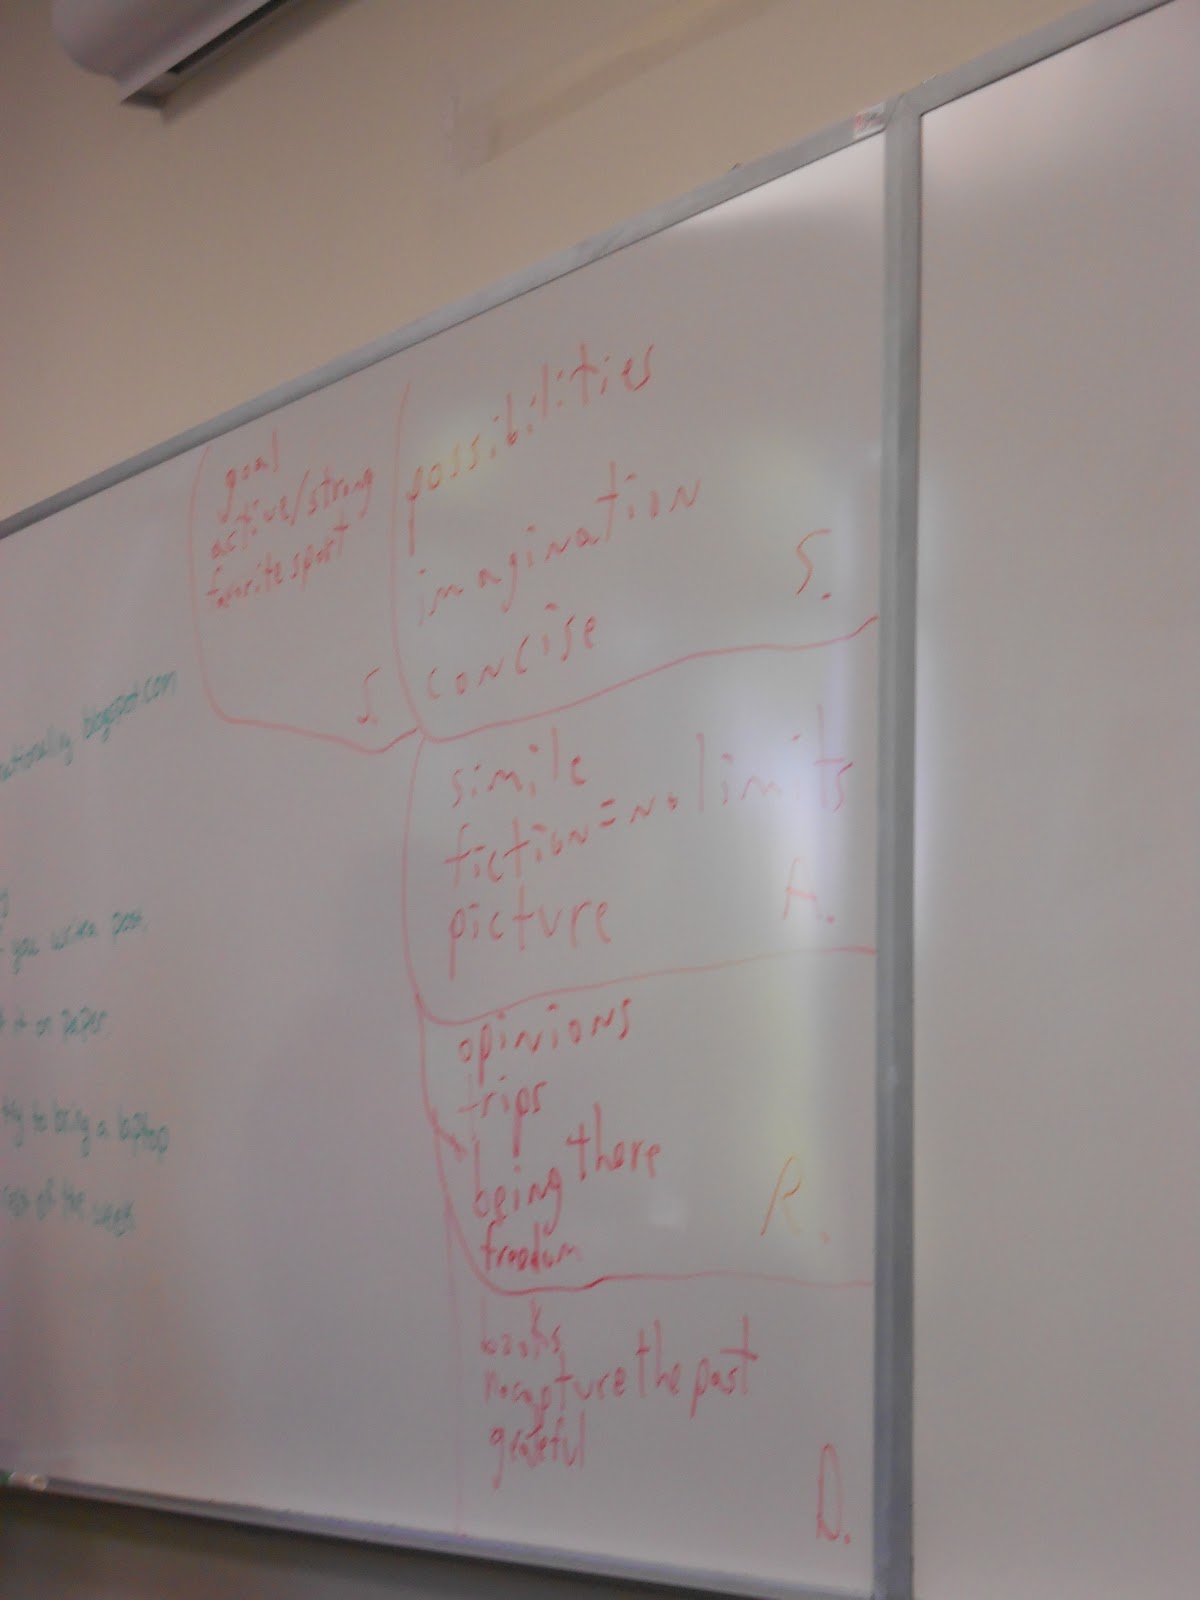 goal
active/strong
favorite sport
S.
possibilities
imagination
concise
S.
simile
fiction = no limits
picture
A.
opinions
trips
being there
freedom
R.
books
recapture the past
grateful
D.
blogspot.com
you write a post,
it on paper.
try to bring a laptop
of the week